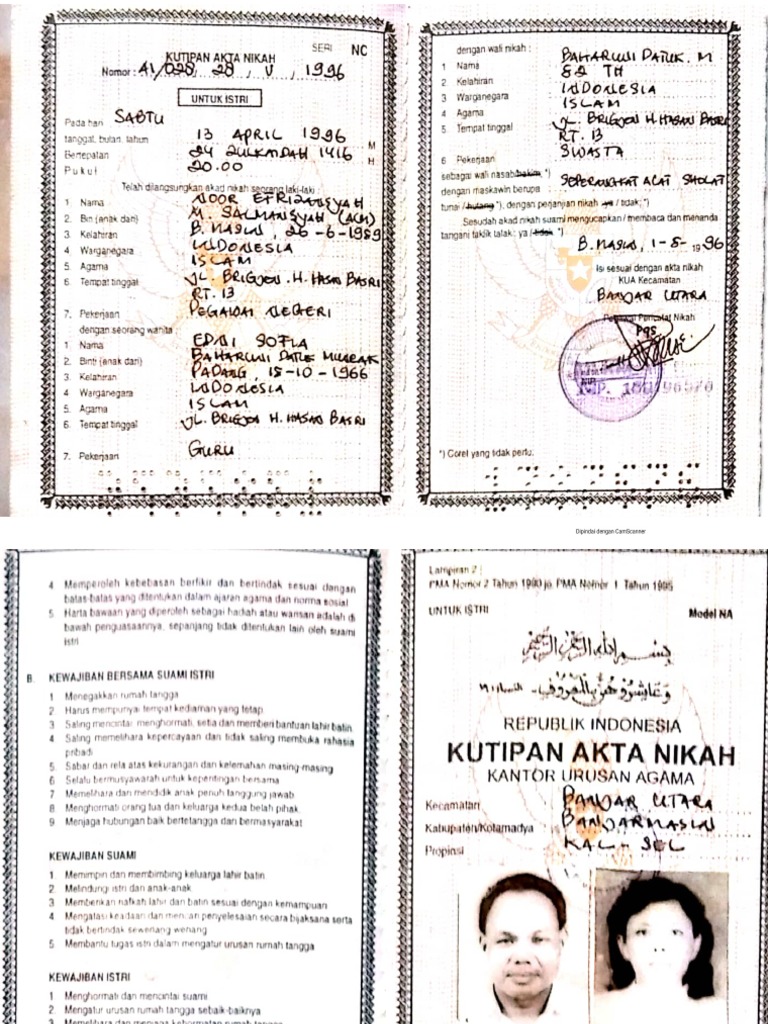 SERI NC
KUTIPAN AKTA NIKAH
Nomor : 41/020, 20, V, 1996
UNTUK ISTRI
Pada hari SABTU
tanggal, bulan, tahun 13 APRIL 1996 M
Bertepatan 24 ZULKAIDAH 1416 H
Pukul 20.00
Telah dilangsungkan akad nikah seorang laki-laki :
1 Nama NOOR EFRIZANSYAH
2. Bin (anak dari) M. SALMANSYAH (ALM)
3 Kelahiran B. MASIN, 26-6-1959
4 Warganegara INDONESIA
5. Agama ISLAM
6 Tempat tinggal JL. BRIGJEN. H. HASAN BASRI
RT. 13
7. Pekerjaan PEGAWAI NEGERI
dengan seorang wanita
1 Nama EDNI SOFIA
2. Binti (anak dari) BAHARUNI DATUK
3. Kelahiran PADANG, 15-10-1966
4 Warganegara INDONESIA
5. Agama ISLAM
6. Tempat tinggal JL. BRIGJEN H. HASAN BASRI
7. Pekerjaan GURU
dengan wali nikah :
1 Nama BAHARUNI DATUK. M
2. Kelahiran 82 TH
3 Warganegara INDONESIA
4 Agama ISLAM
5 Tempat tinggal JL. BRIGJEN H. HASAN BASRI
RT. 13
6 Pekerjaan SWASTA
sebagai wali nasab/hakim, *)
dengan maskawin berupa SEPERANGKAT ALAT SHOLAT
tunai / hutang *), dengan perjanjian nikah ya / tidak; *)
Sesudah akad nikah suami mengucapkan / membaca dan menanda
tangani taklik talak : ya / tidak *)
B. MASIN, 1-5-1996
Isi sesuai dengan akta nikah
KUA Kecamatan
BANJAR UTARA
Pegawai Pencatat Nikah
*) Coret yang tidak perlu.
Dipindai dengan CamScanner
4 Memperoleh kebebasan berfikir dan bertindak sesuai dengan
batas-batas yang ditentukan dalam ajaran agama dan norma sosial
5 Harta bawaan yang diperoleh sebagai hadiah atau warisan adalah di
bawah penguasaannya, sepanjang tidak ditentukan lain oleh suami
istri
B. KEWAJIBAN BERSAMA SUAMI ISTRI
1 Menegakkan rumah tangga
2 Harus mempunyai tempat kediaman yang tetap
3 Saling mencintai, menghormati, setia dan memberi bantuan lahir batin
4 Saling memelihara kepercayaan dan tidak saling membuka rahasia
pribadi
5 Sabar dan rela atas kekurangan dan kelemahan masing-masing
6 Selalu bermusyawarah untuk kepentingan bersama
7 Memelihara dan mendidik anak penuh tanggung jawab
8 Menghormati orang tua dan keluarga kedua belah pihak
9 Menjaga hubungan baik bertetangga dan bermasyarakat
KEWAJIBAN SUAMI
1 Memimpin dan membimbing keluarga lahir batin
2 Melindungi istri dan anak-anak
3 Memberikan nafkah lahir dan batin sesuai dengan kemampuan
4 Mengatasi keadaan dan mencari penyelesaian secara bijaksana serta
tidak bertindak sewenang wenang
5 Membantu tugas istri dalam mengatur urusan rumah tangga
KEWAJIBAN ISTRI
1 Menghormati dan mencintai suami
2. Mengatur urusan rumah tangga sebaik-baiknya
3 Memelihara dan menjaga kehormatan rumah tangga
Lampiran 2 :
PMA Nomor 2 Tahun 1990 jo. PMA Nomor 1 Tahun 1995
UNTUK ISTRI Model NA
بسم الله الرحمن الرحيم
وعاشروهن بالمعروف - النساء ١٩
REPUBLIK INDONESIA
KUTIPAN AKTA NIKAH
KANTOR URUSAN AGAMA
Kecamatan BANJAR UTARA
Kabupaten/Kotamadya BANJARMASIN
Propinsi KAL-SEL